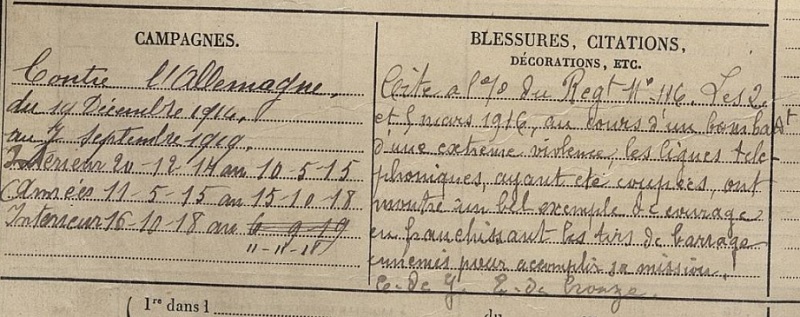 CAMPAGNES.
Contre l'Allemagne,
du 19 Décembre 1914,
au 7 Septembre 1919.
Intérieur 20-12-14 au 10-5-15
(Armées 11-5-15 au 15-10-18
Intérieur 16-10-18 au 6-9-19
11-11-18
BLESSURES, CITATIONS,
DÉCORATIONS, ETC.
Cité a l'o/o du Regt N° 116. Les 2
et 5 mars 1916, au cours d'un bombadt
d'une extreme violence, les lignes télé-
phoniques, ayant été coupées, ont
montré un bel exemple de courage
en franchissant les tirs de barrage
ennemis pour acomplir sa mission.
C. de G. E. de bronze.
1re dans l
du